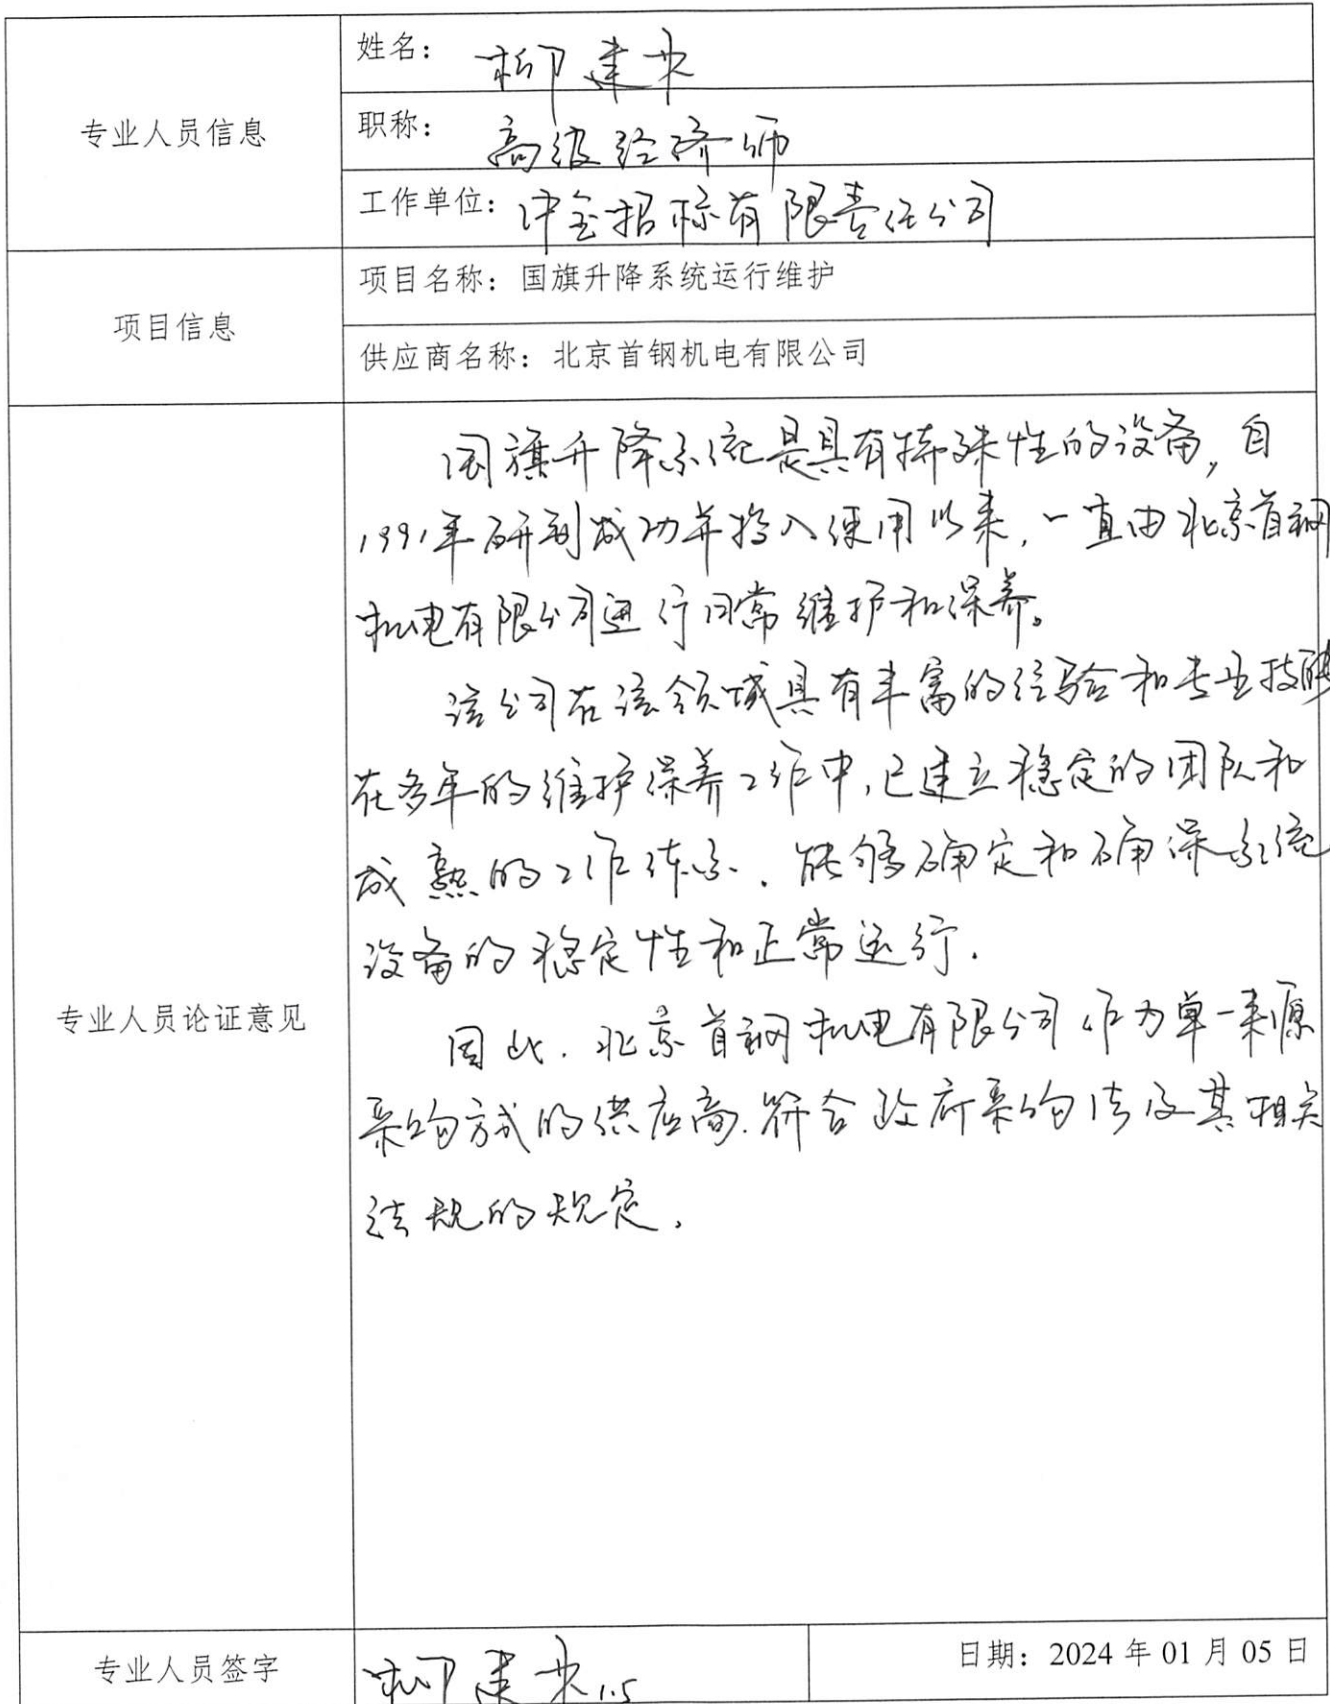 专业人员信息
姓名：柳建
职称：高级经济师
工作单位：中金招标有限责任公司
项目信息
项目名称：国旗升降系统运行维护
供应商名称：北京首钢机电有限公司
专业人员论证意见
国旗升降系统是具有特殊性的设备，自
1991年研制成功并投入使用以来，一直由北京首钢
机电有限公司进行日常维护和保养。
该公司在该领域具有丰富的经验和专业技能
在多年的维护保养工作中，已建立稳定的团队和
成熟的工作体系．能够确定和确保系统
设备的稳定性和正常运行．
因此．北京首钢机电有限公司作为单一来源
采购方式的供应商．符合政府采购法及其相关
法规的规定．
专业人员签字
柳建 1.5
日期：2024 年 01 月 05 日